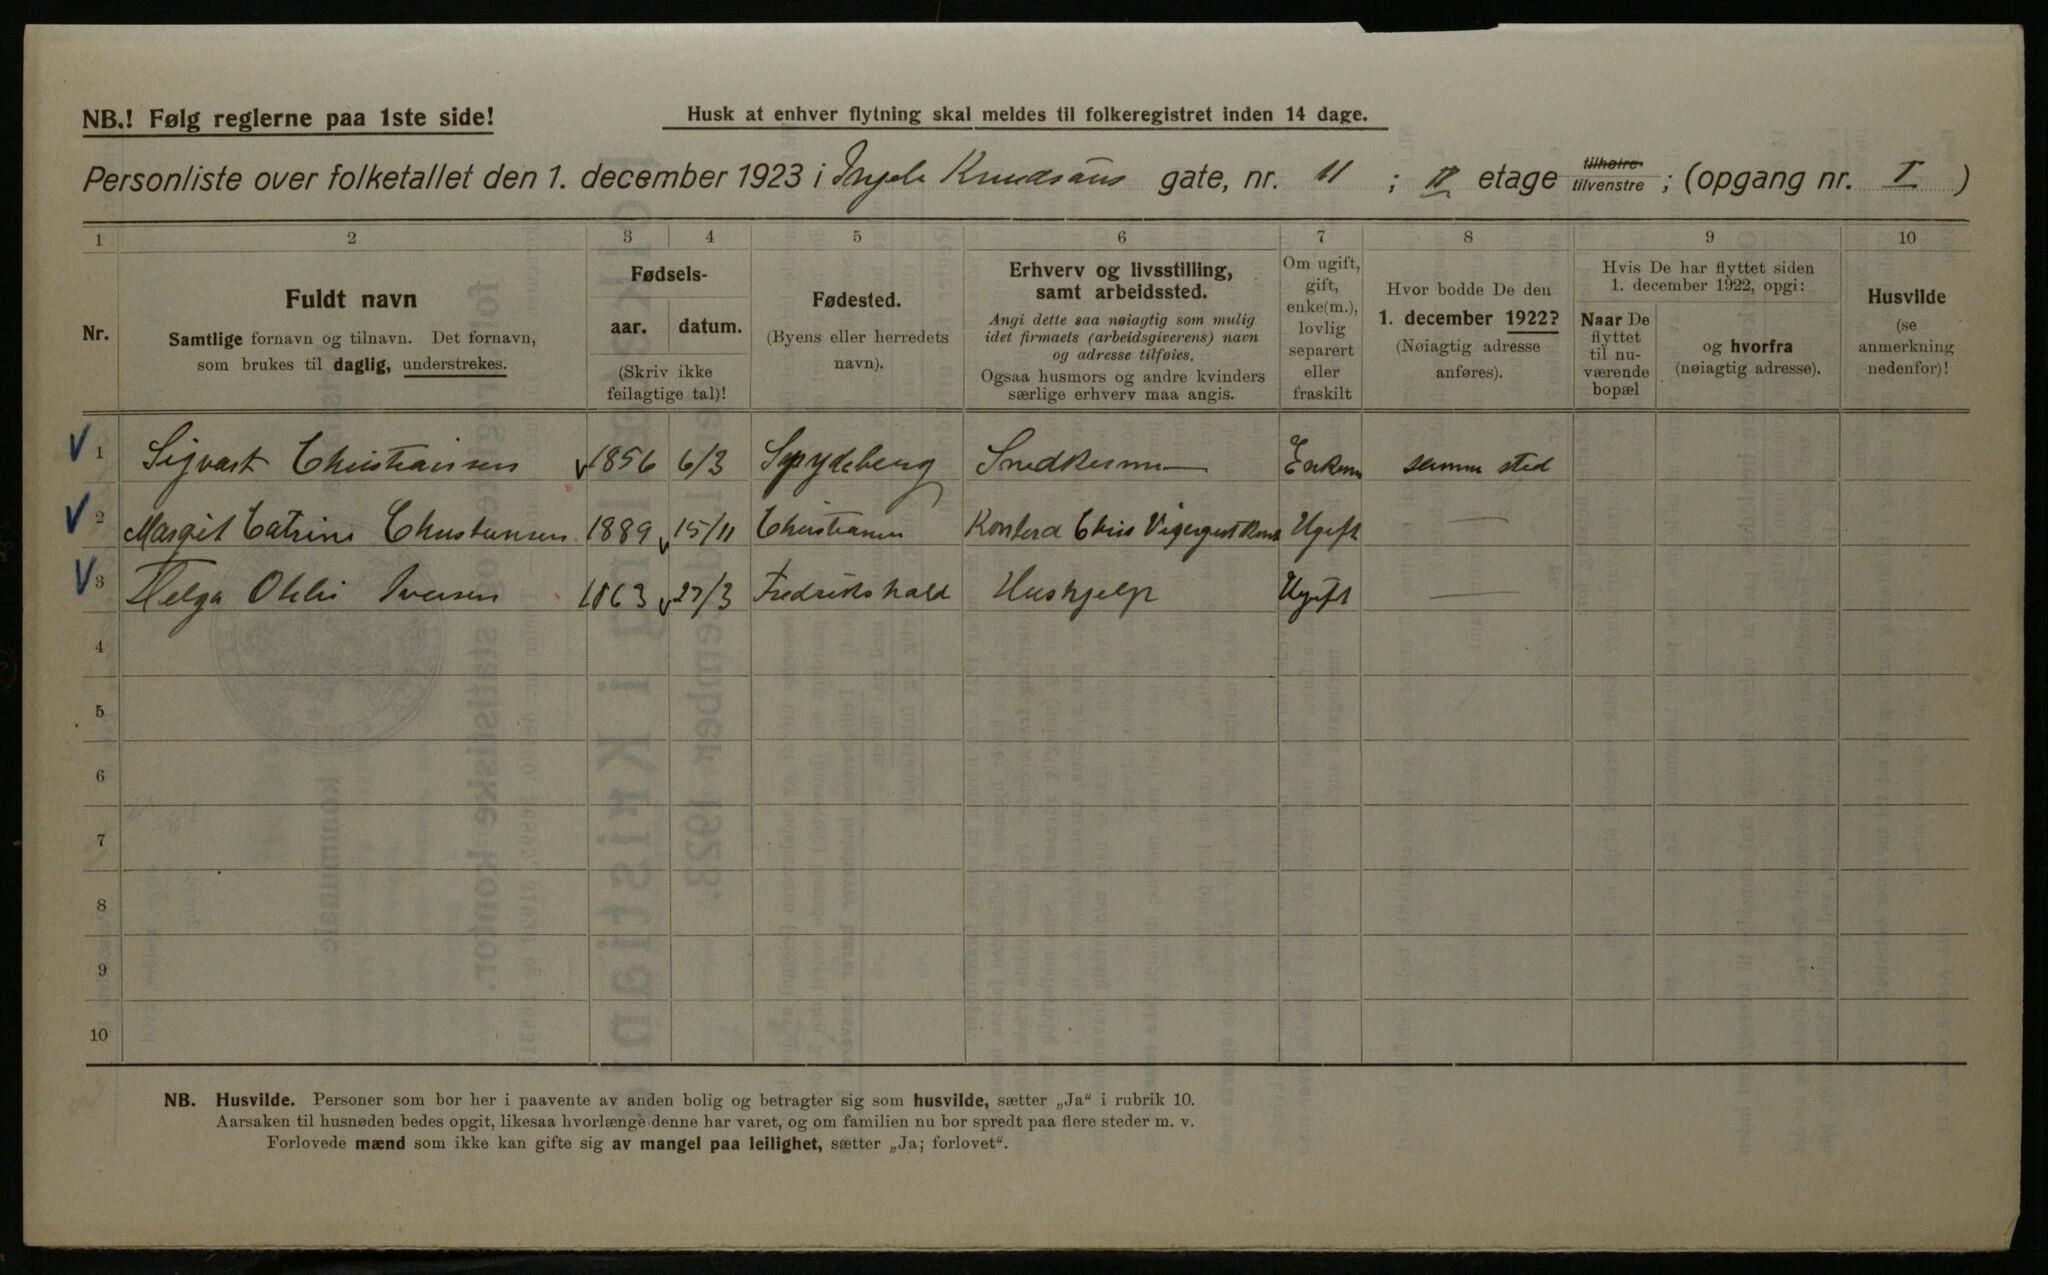 NB.! Følg reglerne paa 1ste side!
Husk at enhver flytning skal meldes til folkeregistret inden 14 dage.
Personliste over folketallet den 1. december 1923 i Ingeb. Knudsøns gate, nr. 11 ; II etage tilhøire tilvenstre ; (opgang nr. I )
1 2 3 4 5 6 7 8 9 10
Nr.
Fuldt navn
Samtlige fornavn og tilnavn. Det fornavn,
som brukes til daglig, understrekes.
Fødsels-
aar. datum.
(Skriv ikke
feilagtige tal)!
Fødested.
(Byens eller herredets
navn).
Erhverv og livsstilling,
samt arbeidssted.
Angi dette saa nøiagtig som mulig
idet firmaets (arbeidsgiverens) navn
og adresse tilføies.
Ogsaa husmors og andre kvinders
særlige erhverv maa angis.
Om ugift,
gift,
enke(m.),
lovlig
separert
eller
fraskilt
Hvor bodde De den
1. december 1922?
(Nøiagtig adresse
anføres).
Hvis De har flyttet siden
1. december 1922, opgi:
Naar De
flyttet
til nu-
værende
bopæl
og hvorfra
(nøiagtig adresse).
Husvilde
(se
anmerkning
nedenfor)!
1 Sigvart Christiansen 1856 6/3 Spydeberg Snedker Enkem samme sted
2 Margit Catrine Christiansen 1889 15/11 Christiania Ugift —
3 Helga Iversen 1863 27/3 Fredrikshald Hushjelp Ugift —
4
5
6
7
8
9
10
NB. Husvilde. Personer som bor her i paavente av anden bolig og betragter sig som husvilde, sætter „Ja“ i rubrik 10.
Aarsaken til husnøden bedes opgit, likesaa hvorlænge denne har varet, og om familien nu bor spredt paa flere steder m. v.
Forlovede mænd som ikke kan gifte sig av mangel paa leilighet, sætter „Ja; forlovet“.